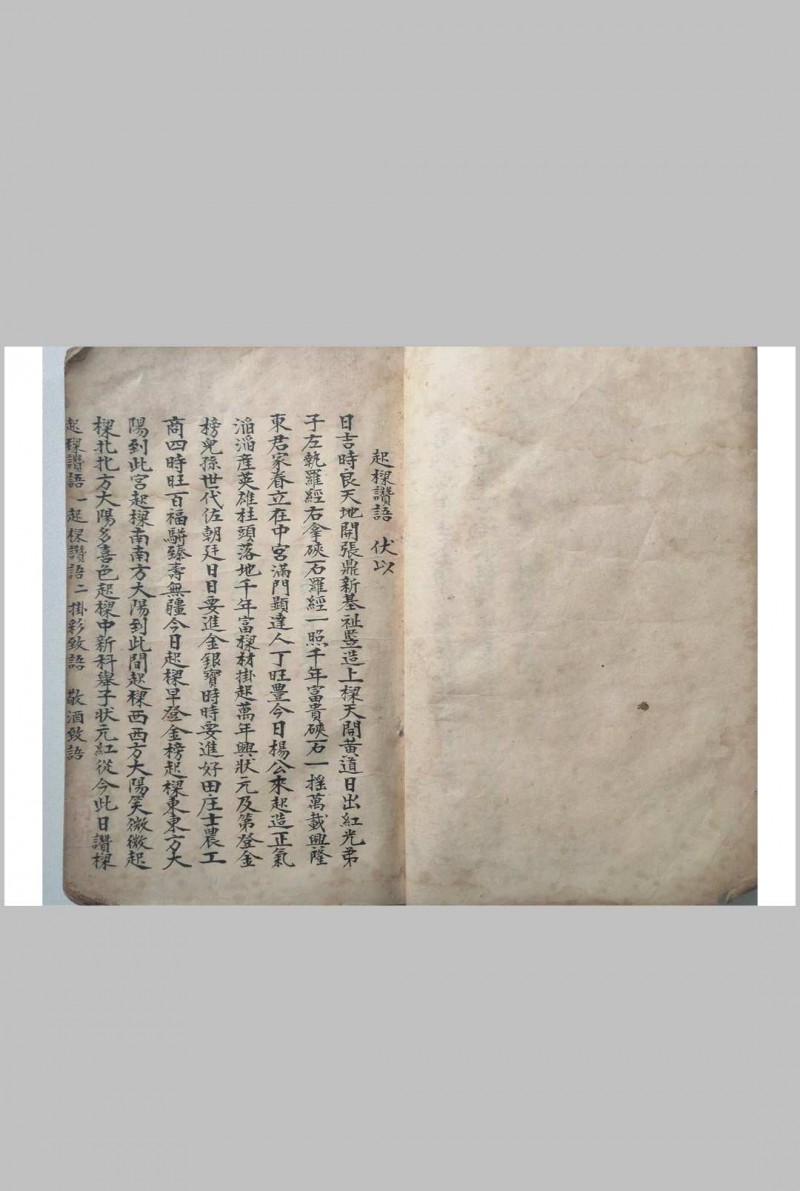 起樑讚語　伏以
日吉時良天地開張鼎新基祉竪造上樑天開黃道日出紅光弟
子左執羅經右拿硤石羅經一照千年富貴硤石一摇萬載興隆
東君家春立在中宮滿門顕達人丁旺豊今日楊公來起造正氣
滔滔産英雄柱頭落地千年富樑材掛起萬年興狀元及第登金
榜兒孫世代佐朝廷日日要進金銀寶時時要進好田庄士農工
商四時旺百福駢臻壽無疆今日起樑早登金榜起樑東東方大
陽到此宮起樑南南方大陽到此間起樑西西方大陽笑微微起
樑北北方大陽多喜色起樑中新科舉子狀元紅從今此日讚樑
起樑讚語一起樑讚語二掛彩致語　敬酒致語